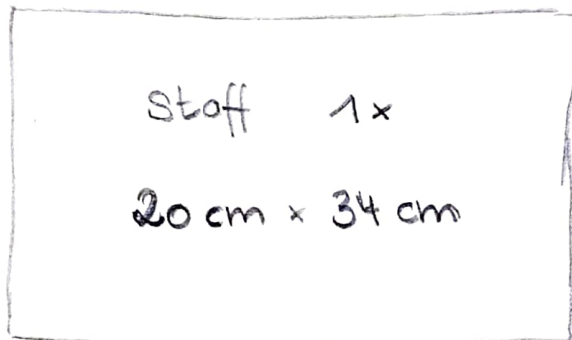 Stoff 1x
20 cm x 34 cm